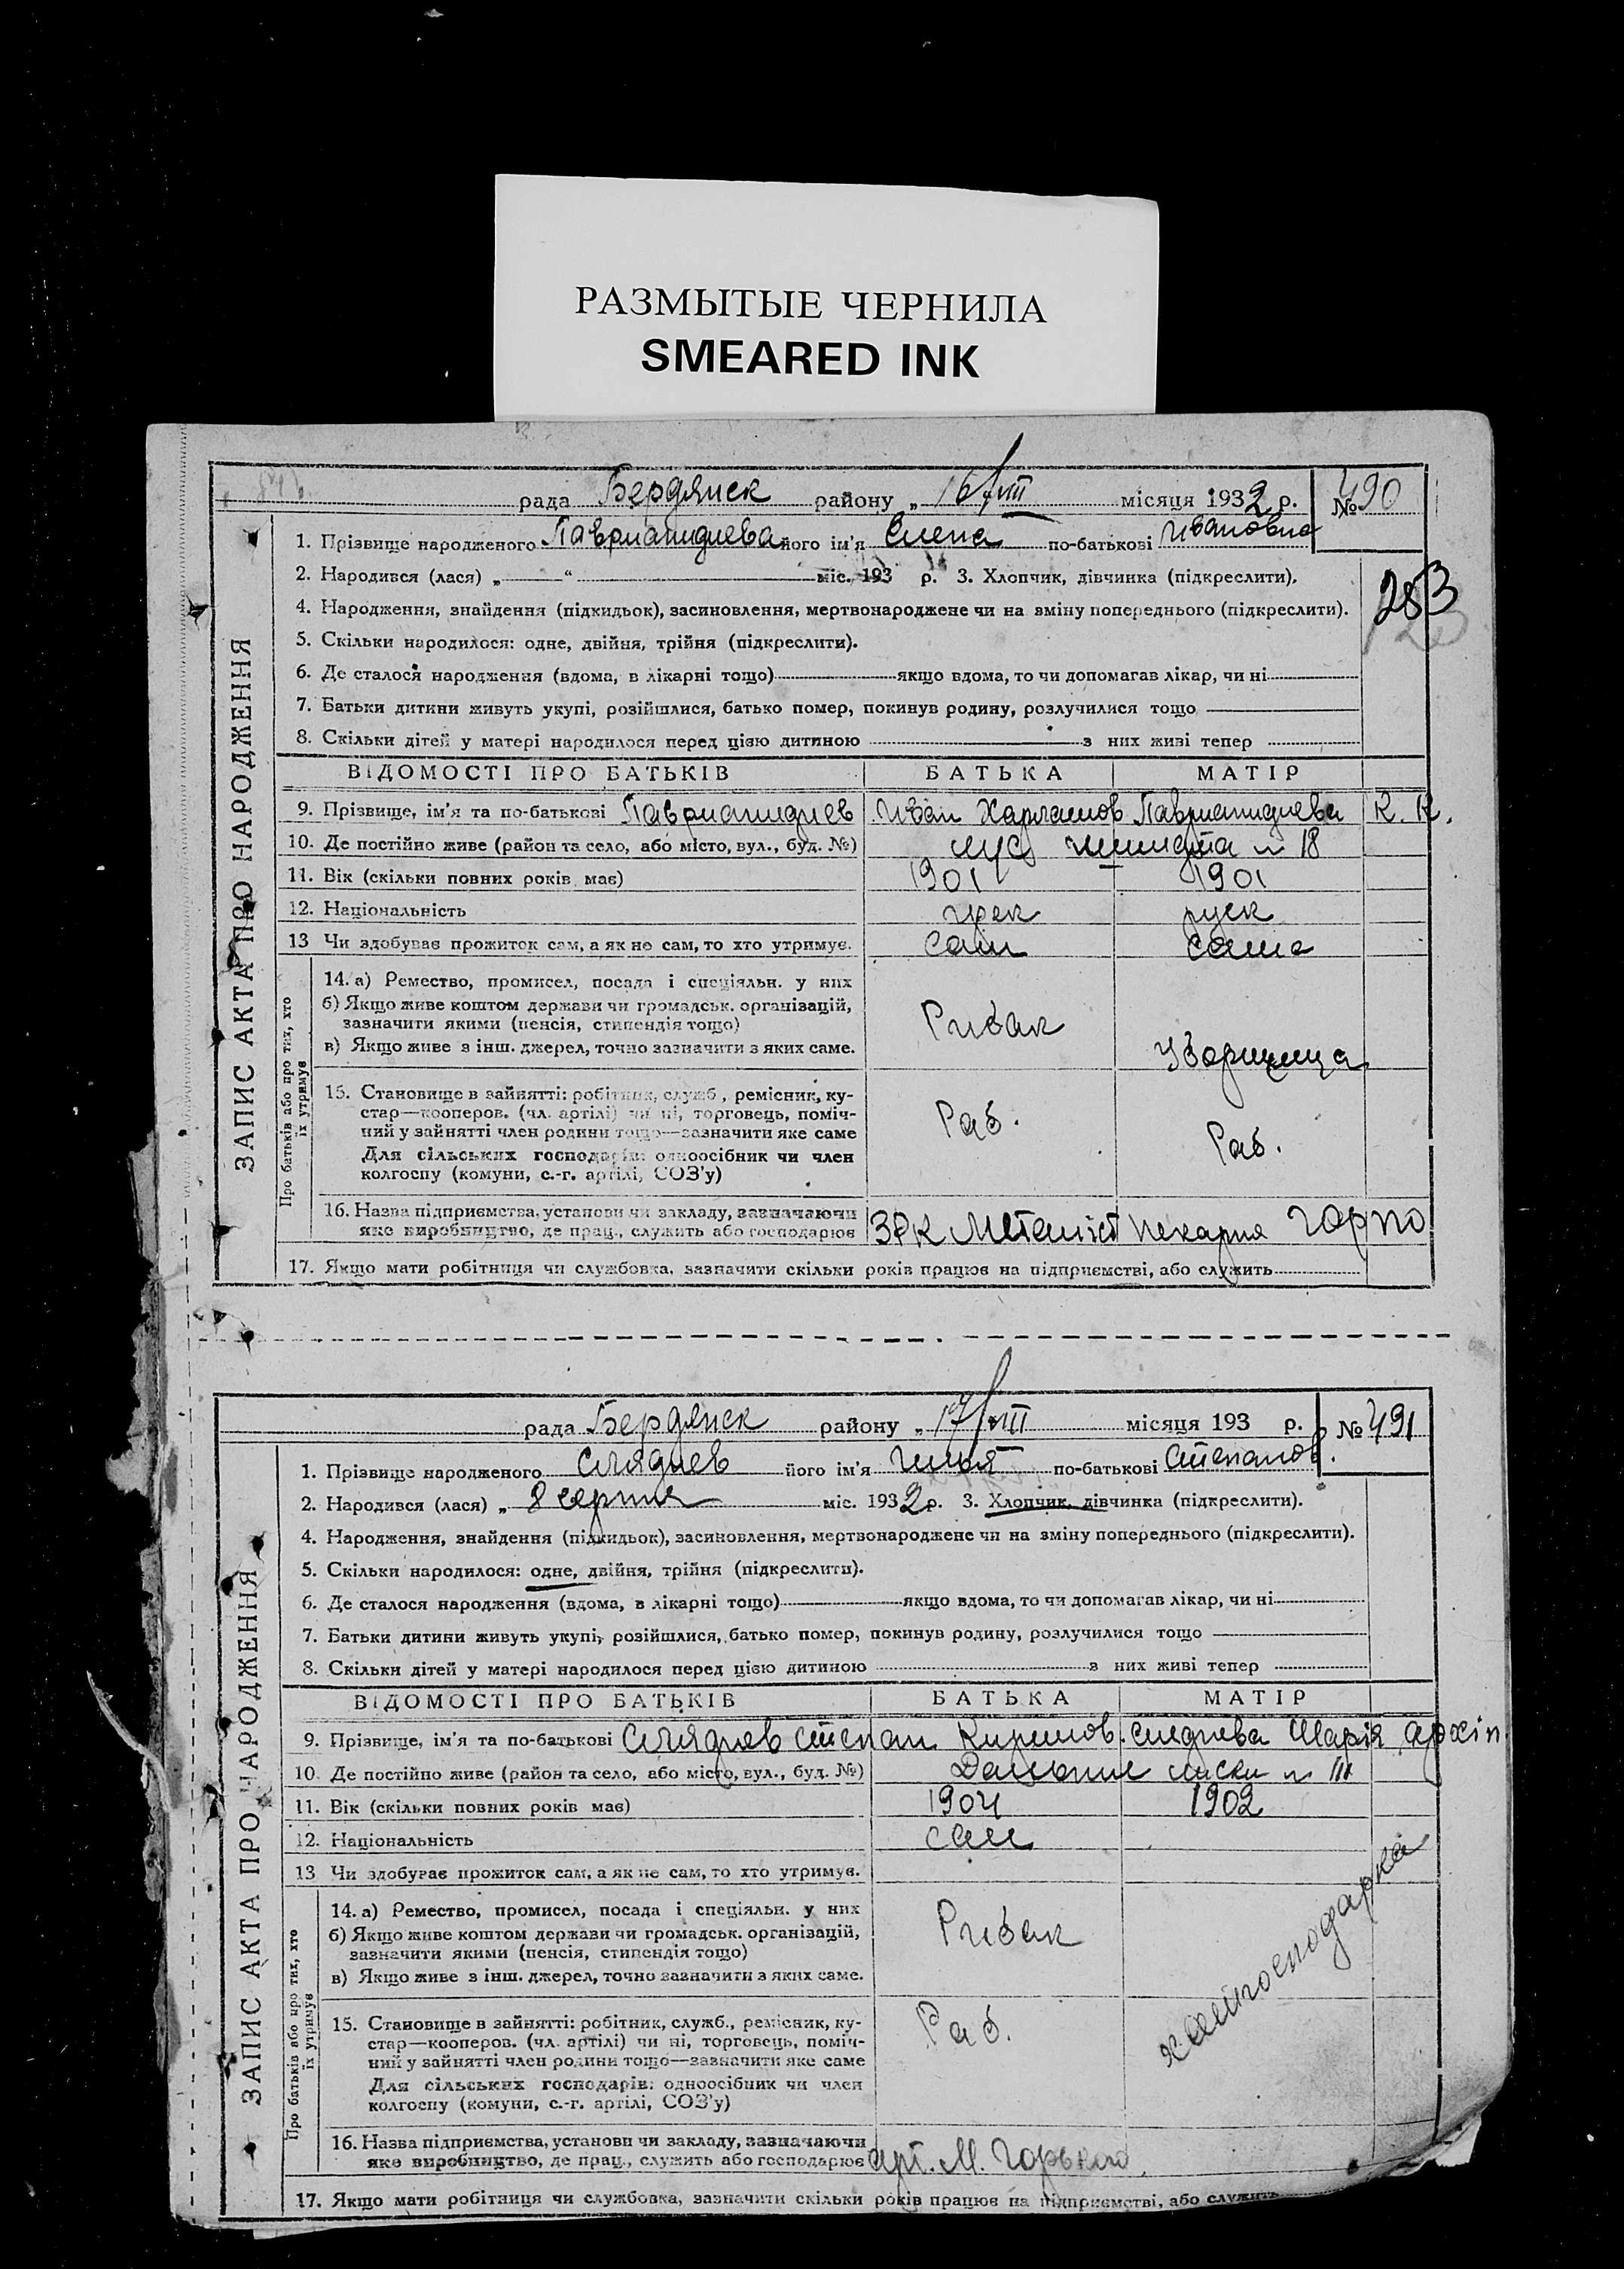 РАЗМЫТЫЕ ЧЕРНИЛА
SMEARED INK
рада Бердянск району „ 16/VIII місяця 1932 р. № 490
1. Прізвище народженого його ім'я Елена по-батькові Ивановна
2. Народився (лася) „ “ міс. 193 р. 3. Хлопчик, дівчинка (підкреслити).
283
4. Народження, знайдення (підкидьок), засиновлення, мертвонароджене чи на зміну попереднього (підкреслити).
5. Скільки народилося: одне, двійня, трійня (підкреслити).
6. Де сталося народження (вдома, в лікарні тощо) якщо вдома, то чи допомагав лікар, чи ні
7. Батьки дитини живуть укупі, розійшлися, батько помер, покинув родину, розлучилися тощо
8. Скільки дітей у матері народилося перед цією дитиною з них живі тепер
ЗАПИС АКТА ПРО НАРОДЖЕННЯ
ВІДОМОСТІ ПРО БАТЬКІВ БАТЬКА МАТІР
9. Прізвище, ім'я та по-батькові Иван Харламов К. К.
10. Де постійно живе (район та село, або місто, вул., буд. №) 18
11. Вік (скільки повних років має) 1901 1901
12. Національність грек руск
13 Чи здобуває прожиток сам, а як не сам, то хто утримує. Сам сама
Про батьків або про тих, хто їх утримує
14. а) Ремество, промисел, посада і спеціяльн. у них
б) Якщо живе коштом держави чи громадськ. організацій,
зазначити якими (пенсія, стипендія тощо)
в) Якщо живе з інш. джерел, точно зазначити з яких саме.
Рибак
Уборщица
15. Становище в зайнятті: робітник, служб., ремісник, ку-
стар—кооперов. (чл. артілі) чи ні, торговець, поміч-
ний у зайнятті член родини тощо—зазначити яке саме
Для сільських господарів: одноосібник чи член
колгоспу (комуни, с.-г. артілі, СОЗ'у)
Раб. Раб.
16. Назва підприємства, установи чи закладу, зазначаючи
яке виробництво, де прац., служить або господарює
Пекарня Горпо
17. Якщо мати робітниця чи службовка, зазначити скільки років працює на підприємстві, або служить
рада Бердянск району „ 17/VIII місяця 193 р. № 491
1. Прізвище народженого його ім'я Илья по-батькові Степанов.
2. Народився (лася) „ 8 серпня міс. 1932 р. 3. Хлопчик, дівчинка (підкреслити).
4. Народження, знайдення (підкидьок), засиновлення, мертвонароджене чи на зміну попереднього (підкреслити).
5. Скільки народилося: одне, двійня, трійня (підкреслити).
6. Де сталося народження (вдома, в лікарні тощо) якщо вдома, то чи допомагав лікар, чи ні
7. Батьки дитини живуть укупі, розійшлися, батько помер, покинув родину, розлучилися тощо
8. Скільки дітей у матері народилося перед цією дитиною з них живі тепер
ЗАПИС АКТА ПРО НАРОДЖЕННЯ
ВІДОМОСТІ ПРО БАТЬКІВ БАТЬКА МАТІР
9. Прізвище, ім'я та по-батькові Степан Кирилов. Марія Архіп
10. Де постійно живе (район та село, або місто, вул., буд. №)
11. Вік (скільки повних років має) 1904 1902
12. Національність сам
13 Чи здобуває прожиток сам, а як не сам, то хто утримує.
Про батьків або про тих, хто їх утримує
14. а) Ремество, промисел, посада і спеціяльн. у них
б) Якщо живе коштом держави чи громадськ. організацій,
зазначити якими (пенсія, стипендія тощо)
в) Якщо живе з інш. джерел, точно зазначити з яких саме.
Рибак
15. Становище в зайнятті: робітник, служб., ремісник, ку-
стар—кооперов. (чл. артілі) чи ні, торговець, поміч-
ний у зайнятті член родини тощо—зазначити яке саме
Для сільських господарів: одноосібник чи член
колгоспу (комуни, с.-г. артілі, СОЗ'у)
Раб.
16. Назва підприємства, установи чи закладу, зазначаючи
яке виробництво, де прац., служить або господарює
арт. М. Горького
17. Якщо мати робітниця чи службовка, зазначити скільки років працює на підприємстві, або служить